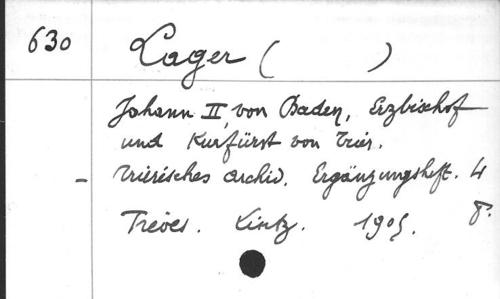 630 Lager ( )
Johann II, von Baden, Erzbischof
und Kurfürst von Trier.
- Trierisches Archiv. Ergänzungsheft. 4
Trèves. Lintz. 1905. 8.